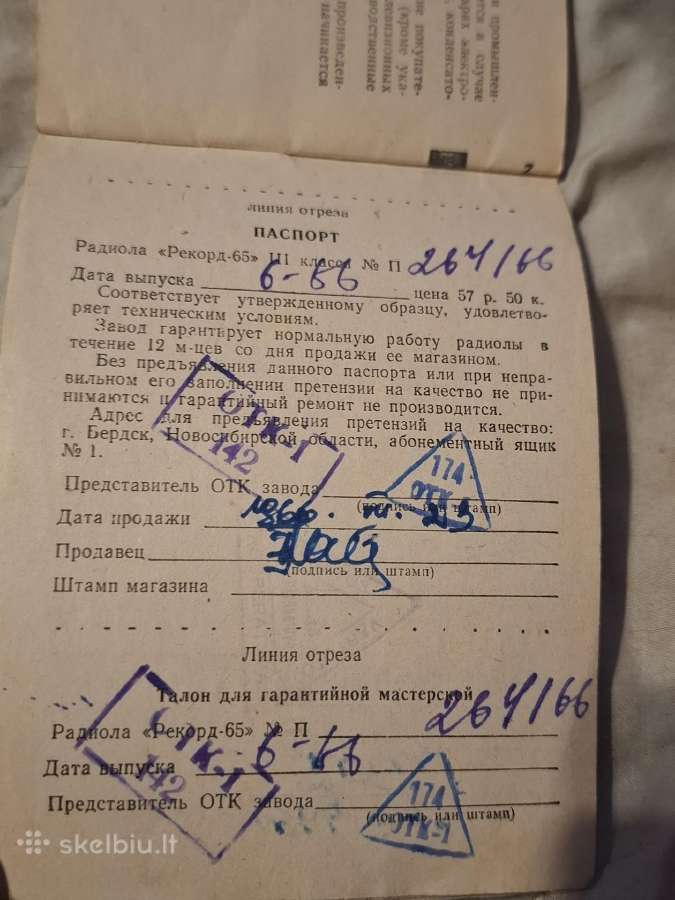 и промышлен-
ются в случае
арах электро-
, конденсато-
не покупате-
(кроме ука-
левизионных
водственные
произведен-
начинается
2
линия отреза
ПАСПОРТ
Радиола «Рекорд-65» III класса № П 264/66
Дата выпуска 6-66 цена 57 р. 50 к.
Соответствует утвержденному образцу, удовлетво-
ряет техническим условиям.
Завод гарантирует нормальную работу радиолы в
течение 12 м-цев со дня продажи ее магазином.
Без предъявления данного паспорта или при непра-
вильном его заполнении претензии на качество не при-
нимаются и гарантийный ремонт не производится.
Адрес для предъявления претензий на качество:
г. Бердск, Новосибирской области, абонементный ящик
№ 1.
ОТК-1
142
174
ОТК
Представитель ОТК завода
(подпись или штамп)
Дата продажи 1966. 23
Продавец
(подпись или штамп)
Штамп магазина
Линия отреза
Талон для гарантийной мастерской
Радиола «Рекорд-65» № П 264/66
Дата выпуска 6-66
Представитель ОТК завода
(подпись или штамп)
ОТК-1
142
174
ОТК-1
skelbiu.lt